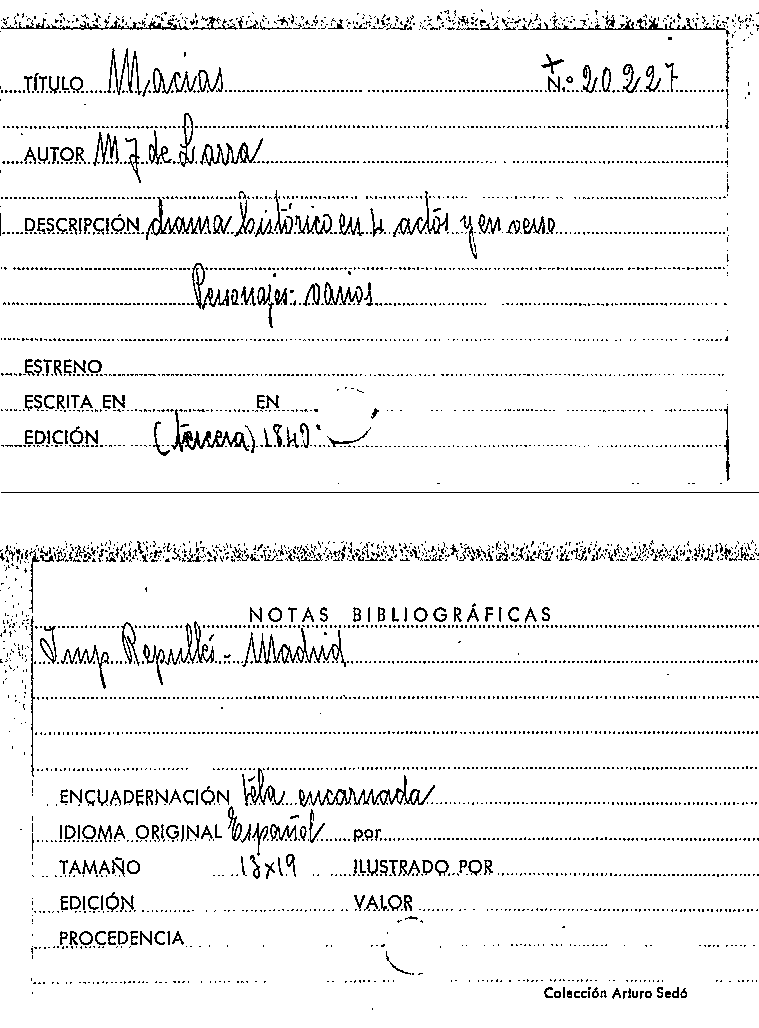 TÍTULO Macias N.º 20227
AUTOR M J de Larra
DESCRIPCIÓN drama histórico en 4 actos y en verso
Personajes- varios
ESTRENO
ESCRITA EN EN
EDICIÓN (tercera) 1840
NOTAS BIBLIOGRÁFICAS
Imp Repullés - Madrid
ENCUADERNACIÓN tela encarnada
IDIOMA ORIGINAL Español por
TAMAÑO 13x19 ILUSTRADO POR
EDICIÓN VALOR
PROCEDENCIA
Colección Arturo Sedó